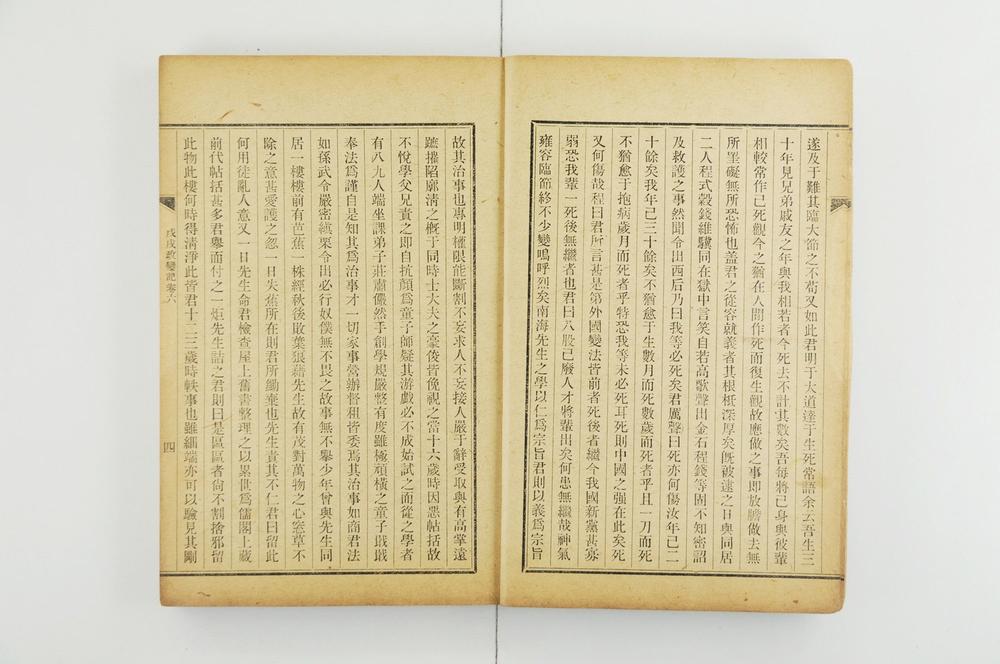 遂及于難其臨大節之不苟又如此君明于大道達于生死常語余云吾生三
十年見兄弟戚友之年與我相若者今死去不計其數矣吾每將己身與彼輩
相較常作已死觀今之猶在人間作死而復生觀故應做之事即放膽做去無
所罣礙無所恐怖也蓋君之從容就義者其根柢深厚矣旣被逮之日與同居
二人程式穀錢維驥同在獄中言笑自若高歌聲出金石程錢等固不知密詔
及救護之事然聞令出西后乃曰我等必死矣君厲聲曰死亦何傷汝年已二
十餘矣我年已三十餘矣不猶愈于生數月而死數歲而死者乎且一刀而死
不猶愈于抱病歲月而死者乎特恐我等未必死耳死則中國之强在此矣死
又何傷哉程曰君所言甚是第外國變法皆前者死後者繼今我國新黨甚寡
弱恐我輩一死後無繼者也君曰八股已廢人才將輩出矣何患無繼哉神氣
雍容臨節終不少變嗚呼烈矣南海先生之學以仁爲宗旨君則以義爲宗旨
故其治事也專明權限能斷割不妄求人不妄接人嚴于辭受取與有高掌遠
蹠摧陷廓淸之概于同時士大夫之豪俊皆俛視之當十六歲時因惡帖括故
不悅學父兄責之即自抗顏爲童子師疑其游戲必不成始試之而從之學者
有八九人端坐課弟子莊肅儼然手創學規嚴整有度雖極頑橫之童子戢戢
奉法爲謹自是知其爲治事才一切家事營辦督租皆委焉其治事如商君法
如孫武令嚴密縝栗令出必行奴僕無不畏之故事無不舉少年曾與先生同
居一樓樓前有芭蕉一株經秋後敗葉狼藉先生故有茂對萬物之心窓草不
除之意甚愛護之忽一日失蕉所在則君所鋤棄也先生責其不仁君曰留此
何用徒亂人意又一日先生命君檢查屋上舊書整理之以累世爲儒閣上藏
前代帖括甚多君舉而付之一炬先生詰之君則曰是區區者尙不割捨邪留
此物此樓何時得淸淨此皆君十二三歲時軼事也雖細端亦可以驗見其剛
戊戌政變記卷六
四